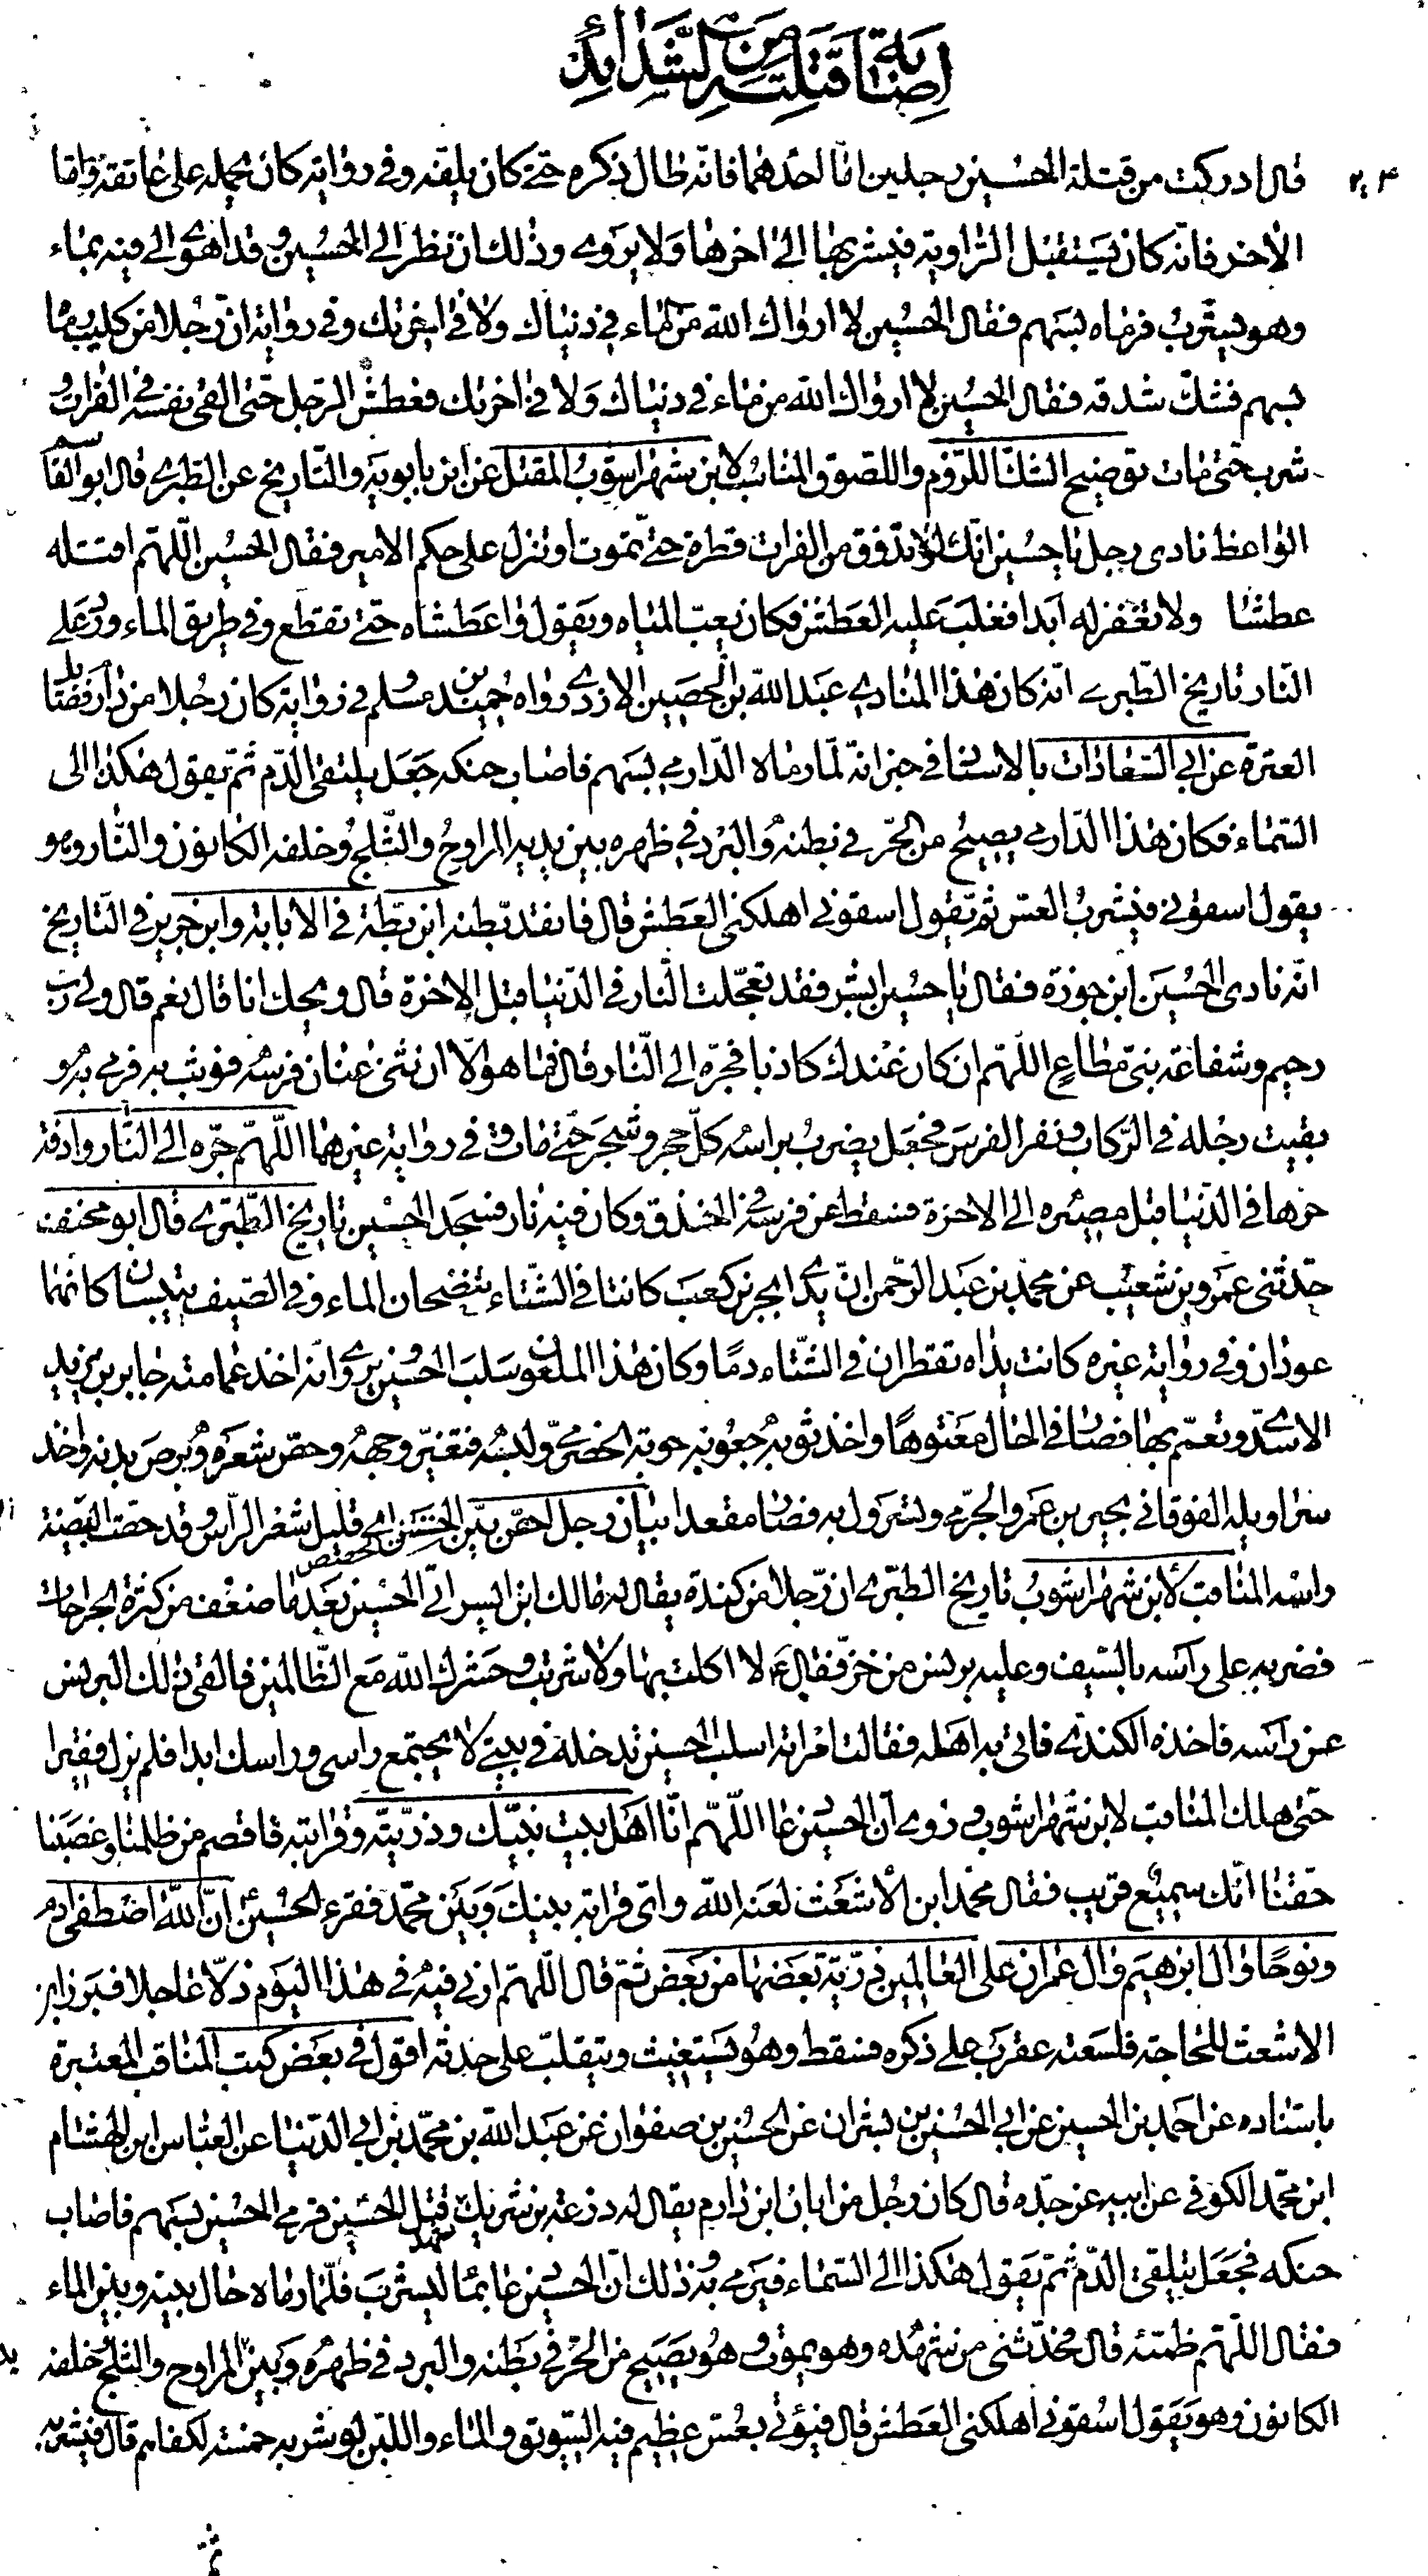 اصابة قتلته من الشدائد
٢٠٤
قال ادركت من قتلة الحسين رجلين امّا احدهما فانّه طال ذكره حتى كان يلفّه وفي رواية كان يحمله على عاتقه وامّا
الآخر فانّه كان يستقبل الراوية فيشربها الى آخرها ولا يروى وذلك انّه نظر الى الحسين و قد اهوى الى فيه بماء
وهو يشرب فرماه بسهم فقال الحسين لا ارواك الله من الماء في دنياك ولا في اخرتك وفي رواية ان رجلا من كليب رماه
بسهم فشكّ شدقه فقال الحسين لا ارواك الله من ماء في دنياك ولا في اخرتك فعطش الرجل حتى القى نفسه في الفرات و
شرب حتى مات توضيح الشكّ اللزوم واللصوق المناقب لابن شهراشوب المقتل عن ابن بابويه والتاريخ عن الطبري قال ابو القاسم
الواعظ نادى رجل يا حسين انّك لن تذوق من الفرات قطرة حتى تموت او تنزل على حكم الامير فقال الحسين اللهم اقتله
عطشا ولا تغفر له ابدا فغلب عليه العطش فكان يعبّ المياه ويقول واعطشاه حتى تقطع وفي طريق الماء ورد على
النار تاريخ الطبري انّه كان هذا المنادي عبد الله بن الحصين الازدي رواه حميد بن مسلم و في رواية كان رجلا من دارم فضايل
العترة عن ابي السعادات بالاسناد في خبر انّه لمّا رماه الدارمي بسهم فاصاب حنكه جعل يلتقى الدم ثم يقول هكذا الى
السماء فكان هذا الدارمي يصيح من الحرّ في بطنه والبرد في ظهره بين يديه المراوح والثلج وخلفه الكانون والنار وهو
يقول اسقوني فيشرب العسّ ثم يقول اسقوني اهلكني العطش قال فانقدّ بطنه ابن بطّة في الابانة وابن جرير في التاريخ
انّه نادى الحسين ابن جوزة فقال يا حسين ابشر فقد تعجّلت النار في الدنيا قبل الاخرة قال ويحك انا قال نعم قال ولي ربّ
رحيم وشفاعة نبيّ مطاع اللهم ان كان عندك كاذبا فجرّه الى النار قال فما هو الّا ان ثنى عنان فرسه فوثب به فرمى به و
بقيت رجله في الركاب ونفر الفرس فجعل يضرب براسه كلّ حجر وشجر حتى مات و في رواية غيرهما اللهم جرّه الى النار واذقه
حرها في الدنيا قبل مصيره الى الاخرة فسقط عن فرسه في الخندق وكان فيه نار فسجد الحسين تاريخ الطبري قال ابو مخنف
حدثني عمرو بن شعيب عن محمد بن عبد الرحمن انّ يدا ابجر بن كعب كانتا في الشتاء تنضحان الماء و في الصيف تيبسان كانهما
عودان و في رواية غيره كانت يداه تقطران في الشتاء دما وكان هذا الملعون سلب الحسين و يروى انه اخذ عمامته جابر بن يزيد
الازدي وتعمّم بها فصار في الحال معتوها واخذ ثوبه جعوبة بن حوية الحضرمي ولبسه فتغيّر وجهه وحصّ شعره وبرص بدنه واخذ
سراويله الفوقاني بحير بن عمرو الجرمي وتسرول به فصار مقعدا بيان رجل احصّ بيّن الحصص اي قليل شعر الراس وقد حصّت البيضة
راسه المناقب لابن شهراشوب تاريخ الطبري ان رجلا من كندة يقال له مالك ابن اليسر اتى الحسين بعد ما ضعف من كثرة الجراحات
فضربه على راسه بالسيف وعليه برنس من خزّ فقال ع لا اكلت بها ولا شربت و حشرك الله مع الظالمين فالقى ذلك البرنس
عن راسه فاخذه الكندي فاتى به اهله فقالت امراته اسلب الحسين تدخله في بيتي لا يجتمع راسي وراسك ابدا فلم يزل فقيرا
حتى هلك المناقب لابن شهراشوب و روى انّ الحسين دعا اللهم انّا اهل بيت نبيّك وذرّيته وقرابته فاقصم من ظلمنا وغصبنا
حقّنا انّك سميع قريب فقال محمد ابن الاشعث لعنه الله واي قرابة بينك وبين محمد فقرء الحسين انّ الله اصطفى ادم
ونوحا وال ابرهيم وال عمران على العالمين ذرّية بعضها من بعض ثم قال اللهم ارني فيه في هذا اليوم ذلّا عاجلا فبرز ابن
الاشعث للحاجة فلسعته عقرب على ذكره فسقط وهو يستغيث ويتقلب على حدثه اقول في بعض كتب المناقب المعتبرة
باسناده عن احمد بن الحسين عن ابي الحسين بن بشران عن الحسين بن صفوان عن عبد الله بن محمد بن ابي الدنيا عن العباس ابن هشام
ابن محمد الكوفي عن ابيه عن جده قال كان رجل من ابان ابن دارم يقال له زرعة بن شريك شهد قتل الحسين فرمى الحسين بسهم فاصاب
حنكه فجعل يتلقى الدم ثم يقول هكذا الى السماء فيرمي به وذلك انّ الحسين دعا بماء ليشرب فلمّا رماه حال بينه وبين الماء
فقال اللهم ظمّئه قال فحدثني من شهده وهو يموت و هو يصيح من الحرّ في بطنه والبرد في ظهره وبين المراوح والثلج خلفه
الكانون وهو يقول اسقوني اهلكني العطش قال فيؤتى بعسّ عظيم فيه السويق والماء واللبن لو شربه خمسة لكفاهم قال فيشربه
ثم